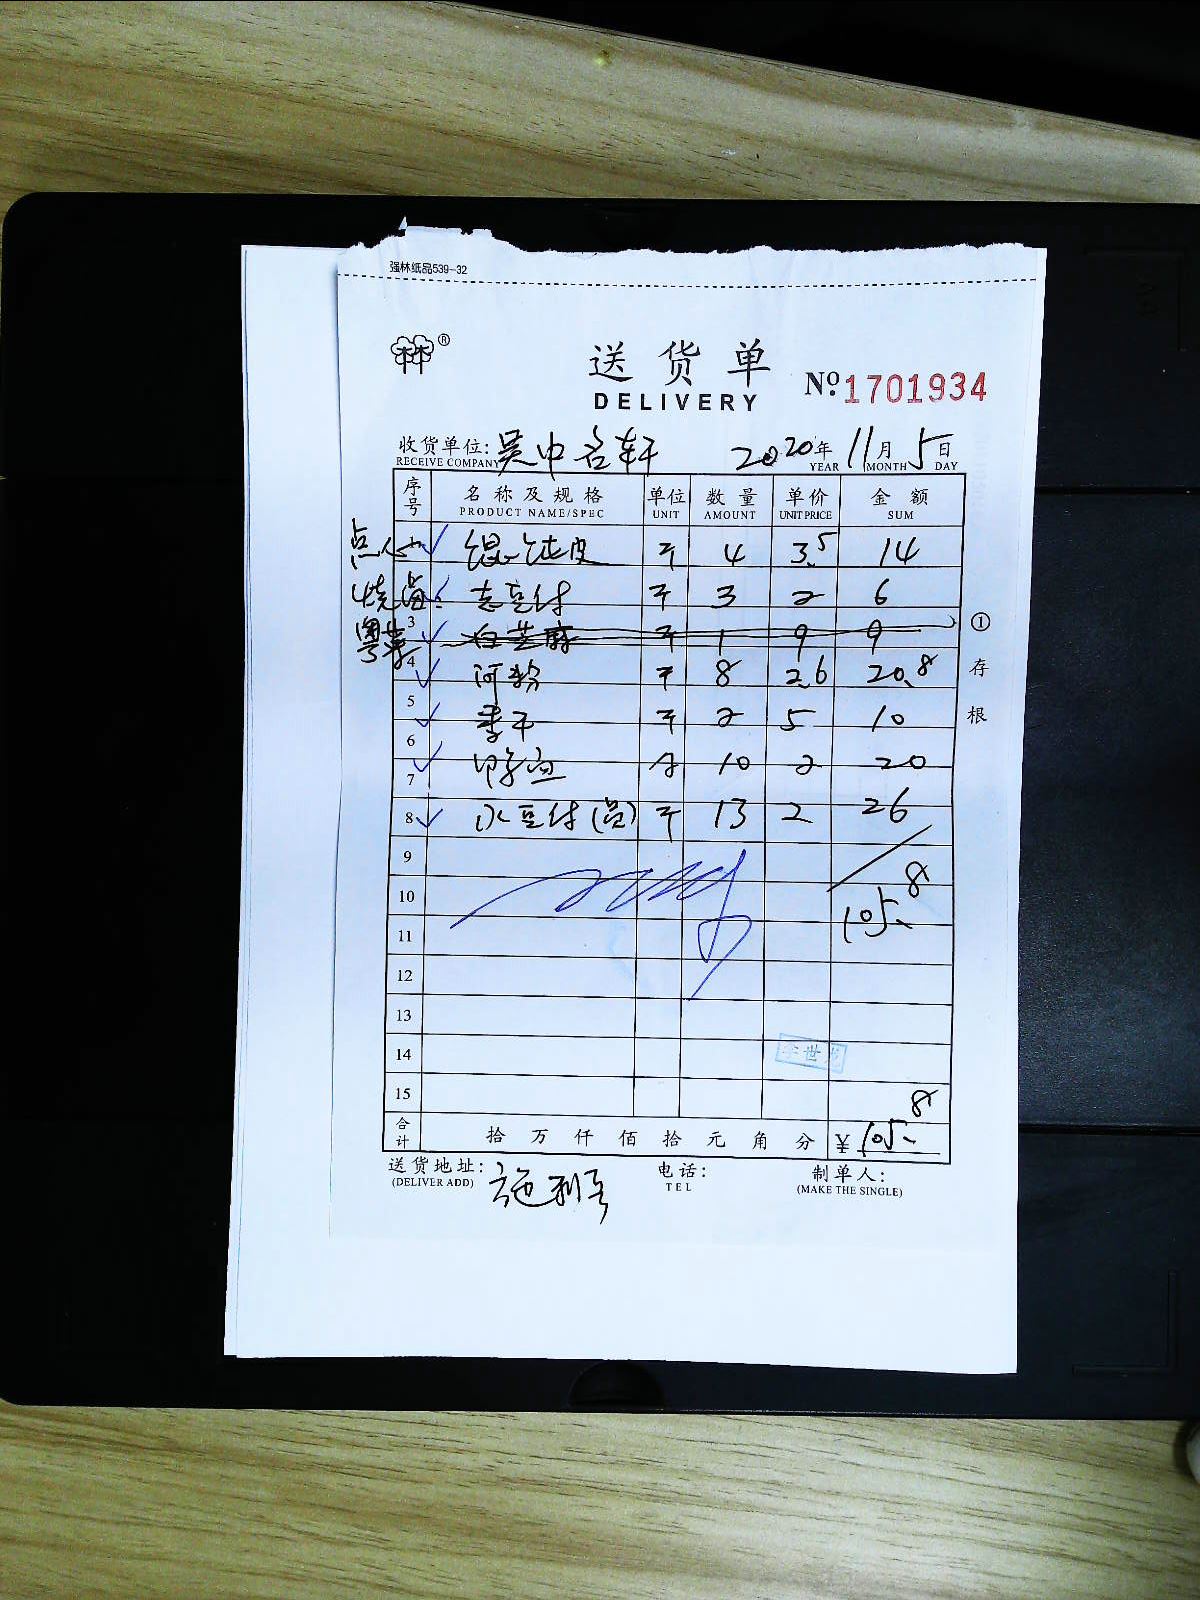 强林纸品539-32
林®
送货单
DELIVERY
No.1701934
收货单位: 吴中名轩 2020年11月5日
RECEIVE COMPANY YEAR MONTH DAY
序号 名称及规格 单位 数量 单价 金额
PRODUCT NAME/SPEC UNIT AMOUNT UNIT PRICE SUM
点心 馄饨皮 斤 4 3.5 14
烧 豆付 斤 3 2 6
粤菜 3 白芝麻 斤 1 9 9
4 河粉 斤 8 2.6 20.8
5 斤 2 5 10
6
7 10 2 20
8 水豆付 斤 13 2 26
9
10 105.8
11
12
13
14 李世
15
合计 拾万仟佰拾元角分 ¥105.8
送货地址: 施利 电话: 制单人:
(DELIVER ADD) TEL (MAKE THE SINGLE)
①存根